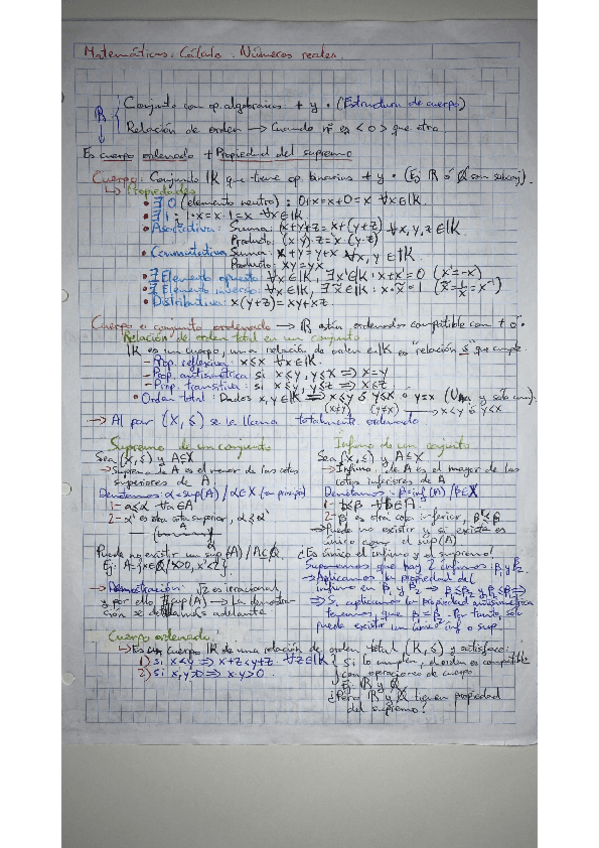 Matemáticas. Cálculo. Números reales.
ℝ { Conjunto con op. algebraicas + y · (Estructura de cuerpo)
Relación de orden → Cuando nº es < o > que otro
Es cuerpo ordenado + Propiedad del supremo
Cuerpo: Conjunto K que tiene op. binarias + y · (Ej ℝ ó ℚ son
↳ Propiedades
• ∃ 0 (elemento neutro): 0+x=x+0=x ∀x∈K
• ∃ 1: 1·x=x·1=x ∀x∈K
• Asociativa: Suma: (x+y)+z=x+(y+z) ∀x,y,z∈K
Producto: (x·y)·z=x·(y·z)
• Conmutativa Suma: x+y=y+x ∀x,y∈K
Producto: xy=yx
• ∃ Elemento opuesto: ∀x∈K, ∃x'∈K: x+x'=0 (x'=-x)
• ∃ Elemento inverso: ∀x∈K, ∃x̃∈K: x·x̃=1 (x̃=1/x=x⁻¹)
• Distributiva: x(y+z)=xy+xz
Cuerpo o conjunto ordenado → ℝ están ordenados compatible con + ó ·
Relación de orden total en un conjunto
K es un cuerpo, una relación de orden en K es "relación ≤" que cumple
- Prop. reflexiva: x≤x ∀x∈K
- Prop. antisimétrica si x≤y, y≤x ⇒ x=y
- Prop. transitiva: si x≤y, y≤z ⇒ x≤z
• Orden total: Dados x,y∈K ⇒ x≤y ó y≤x ó y=x (Una y solo una).
(x≠y) (y≠x) → x<y ó y≤x
→ Al par (X,≤) se le llama totalmente ordenado
Supremo de un conjunto
Sea (X,≤) y A⊆X
→ Supremo de A es el menor de las cotas
superiores de A
Denotamos: α=sup(A) / α∈X
1- a≤α ∀a∈A
2- α' es otra cota superior, α≤α'
A
Puede no existir un sup(A) / A⊂ℚ
Ej: A={x∈ℚ/x>0, x²<2}
→ Demostración: √2 es irracional
y por ello ∄sup(A) → La demostra-
ción se detallará más adelante
Ínfimo de un conjunto
Sea (X,≤) y A⊆X
→ Ínfimo de A es el mayor de las
cotas inferiores de A
Denotamos: β=inf(A) / β∈X
1- β≤b ∀b∈A
2- β' es otra cota inferior, β'≤β
→ Puede no existir y si existe es
único como el sup(A)
¿Es único el ínfimo y el supremo?
Suponemos que hay 2 ínfimos: β₁ y β₂
→ Aplicamos la propiedad del
ínfimo en β₁ y β₂ ⇒ β₁≤β₂ y β₂≤β₁ ⇒
⇒ Si aplicamos la propiedad antisimétrica
tenemos que β₁=β₂. Por tanto, solo
puede existir un único inf o sup.
Cuerpo ordenado.
→ Es un cuerpo K de una relación de orden total (K,≤) y satisface:
1) si x<y ⇒ x+z<y+z ∀z∈K
2) si x,y>0 ⇒ x·y>0
Si lo cumplen, el orden es compatible
con operaciones de cuerpo
Ej: ℝ y ℚ
¿Pero ℝ y ℚ tienen propiedad
del supremo?